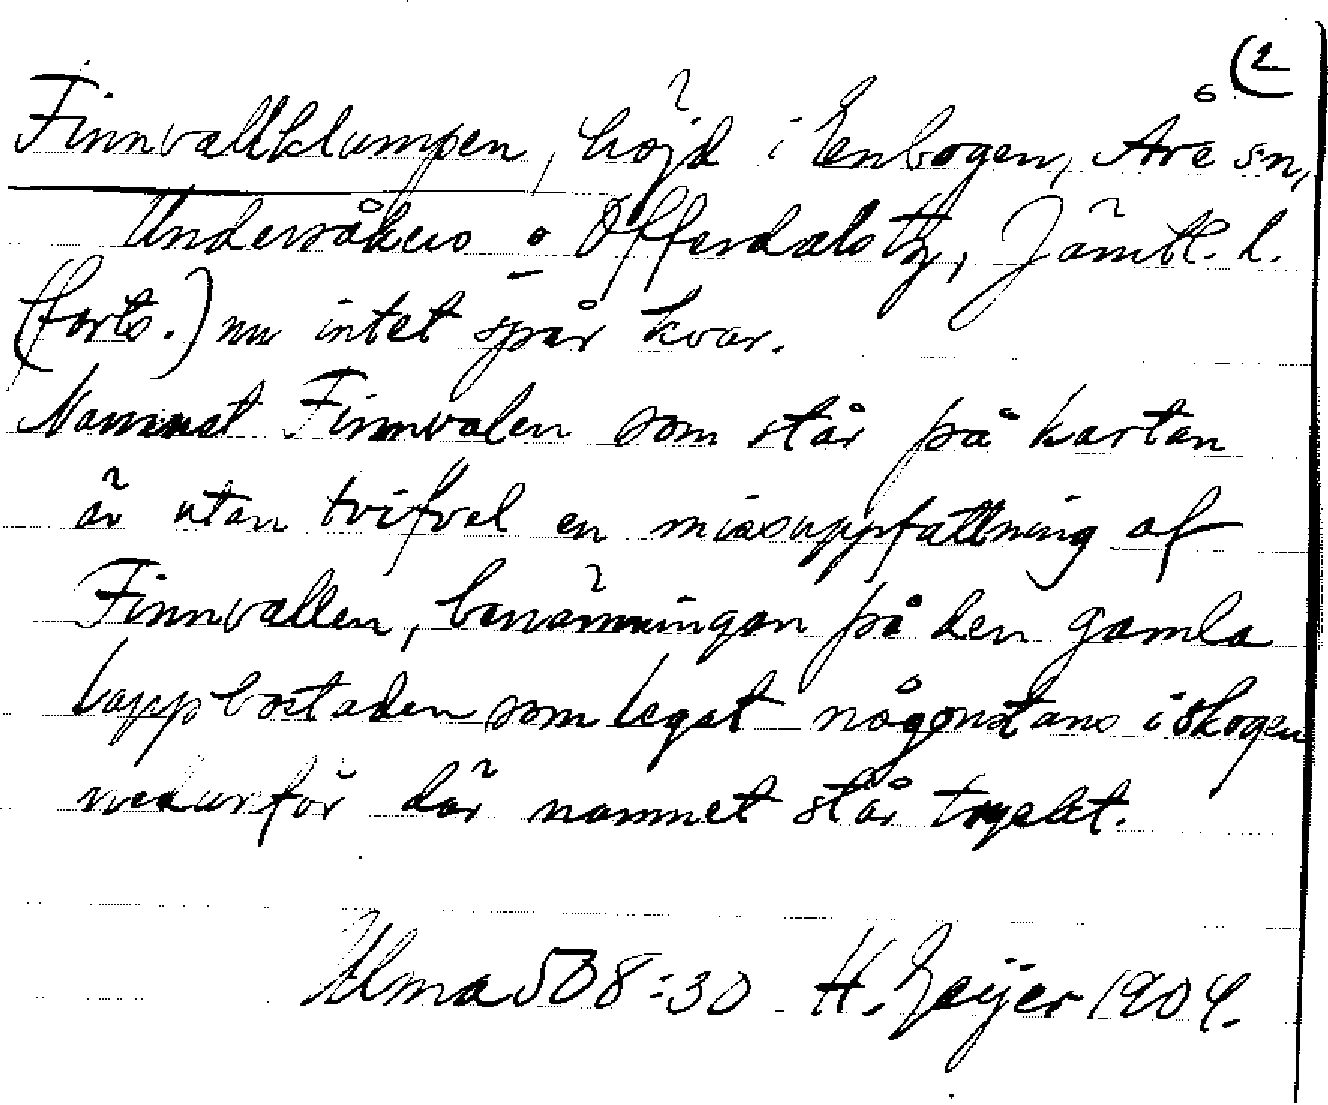 (2
Finnvallklumpen, höjd i Enbogen, Åre sn,
Undersåkers o Offerdals tg, Jämtl. l.
(forts.) nu intet spår kvar.
Namnet Finnvalen som står på kartan
är utan tvifvel en missuppfattning af
Finnvallen, benämningen på den gamla
lappbostaden som legat någonstans i skogen
nedanför där namnet står tryckt.
Ulma 508:30 H. Geijer 1904.